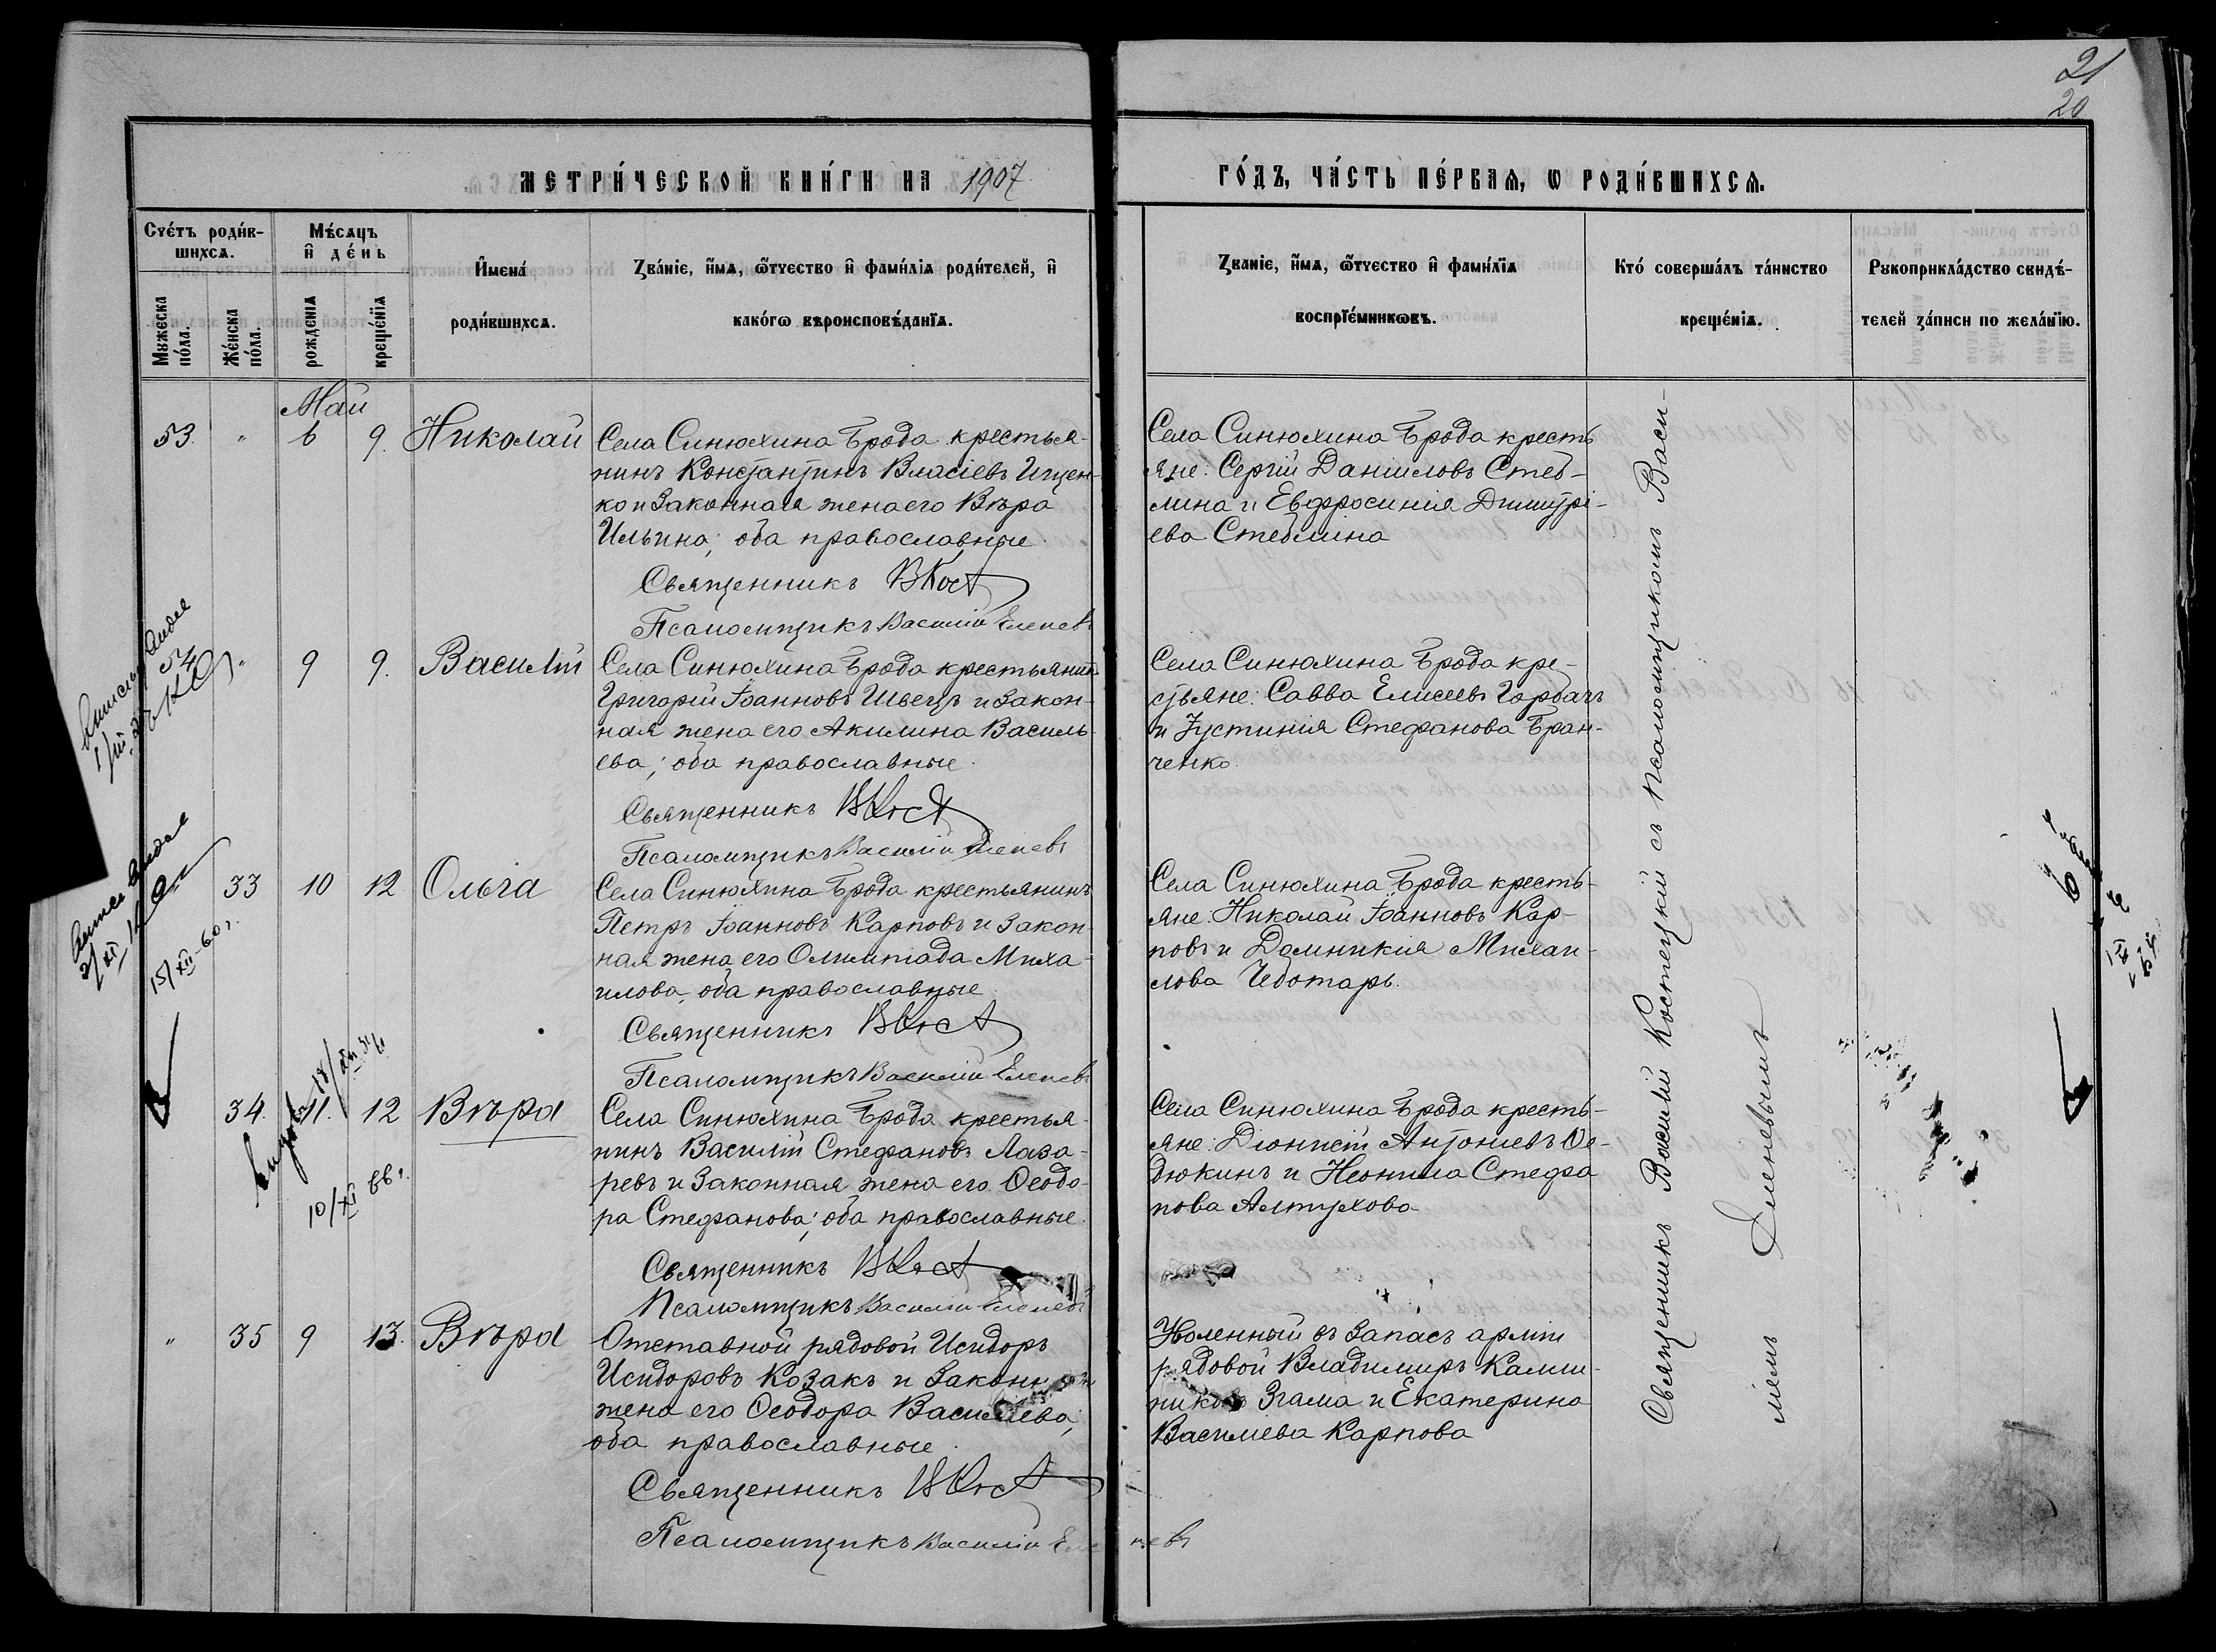 21
20
МЕТРИ́ЧЕСКОЙ КНИ́ГИ НА 1907
ГО́ДЪ, ЧА́СТЬ ПЕ́РВАѦ, Ѡ РОДИ́ВШИХСѦ.
Сче́тъ роди́в-
шихсѧ.
Мꙋ́жеска
по́ла.
Же́нска
по́ла.
Мѣ́сѧцъ
и҆ де́нь
рожденїѧ
креще́нїѧ
И҆мена́
роди́вшихсѧ.
Зва́нїе, и҆́мѧ, ѻ҆́тчество и҆ фами́лїѧ роди́телей, и҆
како́гѡ вѣроисповѣ́данїѧ.
Званїе, и҆́мѧ, ѻ҆́тчество и҆ фами́лїѧ
воспрїе́мникѡвъ.
Кто́ соверша́лъ та́инство
креще́нїѧ.
Рꙋкоприкла́дство свидѣ́-
телей за́писи по жела́нїю.
Май
53. " 6 9. Николай
Села Синюхина Брода крестья-
нинъ Константинъ Власіевъ Ищен-
ко и законная жена его Вѣра
Ильина; оба православные.
Священникъ ВКост
Псаломщикъ Василій Еленевъ
Села Синюхина Брода кресть
яне: Сергій Даніиловъ Стеб-
лина и Евфросинія Димитрі-
ева Стеблина
54 " 9 9. Василій
Села Синюхина Брода крестьянинъ
Григорій Іоанновъ Швецъ и закон-
ная жена его Акилина Василь-
ева; оба православные.
Священникъ ВКост
Псаломщикъ Василій Еленевъ
Села Синюхина Брода кре-
стьяне: Савва Елисеевъ Горбачъ
и Іустинія Стефанова Бран-
ченко.
33 10 12 Ольга
Села Синюхина Брода крестьянинъ
Петръ Іоанновъ Карповъ и закон-
ная жена его Олимпіада Миха-
илова, оба православные.
Священникъ ВКост
Псаломщикъ Василій Еленевъ
Села Синюхина Брода кресть-
яне: Николай Іоанновъ Кар-
повъ и Домникія Михаи-
лова Чеботарь.
15/XII-60 г.
34. 11. 12 Вѣра
Села Синюхина Брода крестья-
нинъ Василій Стефановъ Лаза-
ревъ и законная жена его Ѳеодо-
ра Стефанова; оба православные.
Священникъ ВКост
Псаломщикъ Василій Еленевъ
Села Синюхина Брода кресть-
яне: Діонисій Антоніевъ Ѳе-
дюкинъ и Неонила Стефа
нова Алтухова
10/XI 66 г.
" 35 9 13. Вѣра
Отставной рядовой Исидоръ
Исидоровъ Козакъ и законная
жена его Ѳеодора Василіева;
оба православные.
Священникъ ВКост
Псаломщикъ Василій Еленевъ
Уволенный въ запасъ арміи
рядовой Владимиръ Калли-
никовъ Згама и Екатерина
Василіева Карпова
Священникъ Василій Костецкій съ псаломщикомъ Васи-
ліемъ Еленевымъ